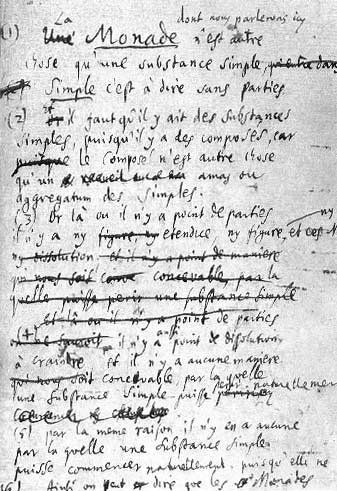 La dont nous parlerons icy
(1) Une Monade n'est autre
chose qu'une substance simple, qui entre dans
Simple c'est à dire sans parties
(2) et il faut qu'il y ait des substances
simples, puisqu'il y a des composés, car
puisque le composé n'est autre chose
qu'un amas ou
aggregatum des simples.
(3) Or là ou il n'y a point de parties ny
il n'y a ny figure, ny etendue ny figure, et ces
ny dissolution. et il n'y a point de maniere
qui nous soit concevable, par la
quelle puisse perir une substance simple
Et là ou il n'y a point de parties
(4) il n'y a aussi point de dissolution
à craindre et il n'y a aucune maniere
qui nous soit concevable par la quelle
une substance simple puisse perir naturellement
(5) par la meme raison il n'y en a aucune
par la quelle une substance simple
puisse commencer naturellement, puisqu'elle ne
(6) Ainsi on peut dire que les Monades